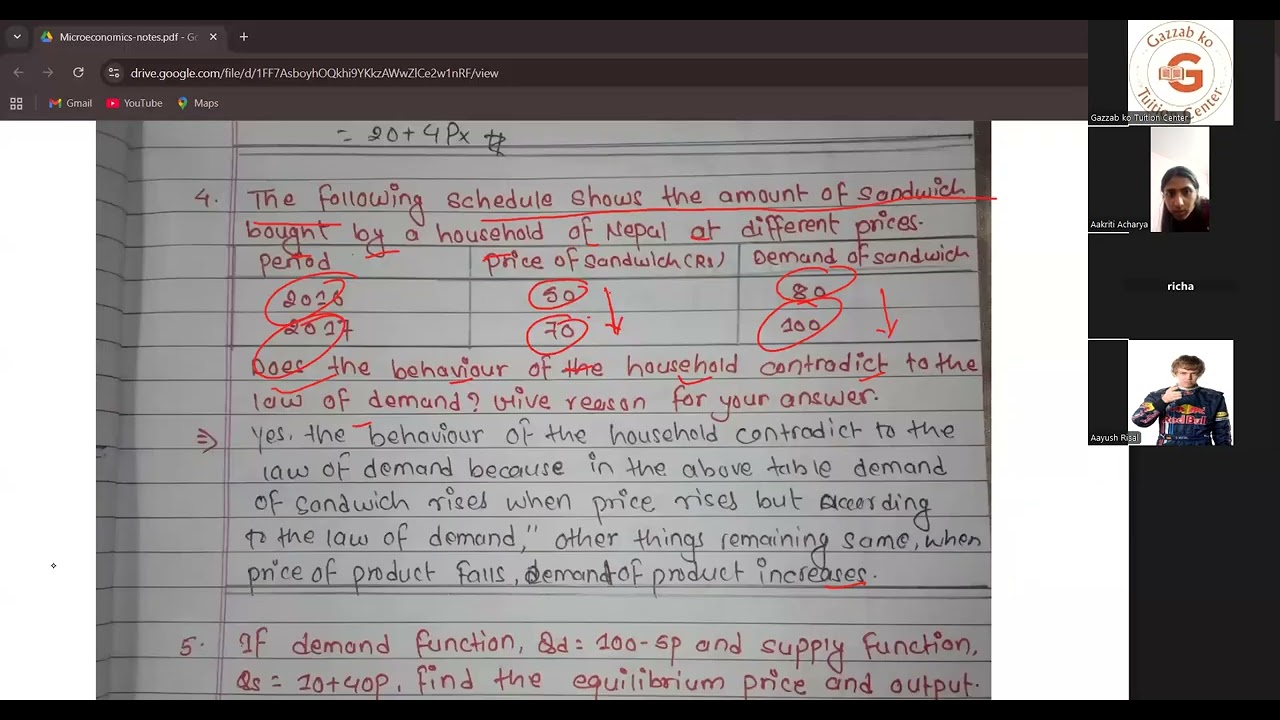 Microeconomics-notes.pdf - Go
drive.google.com/file/d/1FF7AsboyhOQkhi9YKkzAWwZlCe2w1nRF/view
Gmail YouTube Maps
= 20+4Px
4. The following schedule shows the amount of sandwich
bought by a household of Nepal at different prices.
Period Price of sandwich(Rs) Demand of sandwich
2016 50 80
2017 70 100
Does the behaviour of the household contradict to the
law of demand? Give reason for your answer.
⇒ Yes. the behaviour of the household contradict to the
law of demand because in the above table demand
of sandwich rises when price rises but according
to the law of demand," other things remaining same, when
price of product falls, demand of product increases.
5. If demand function, Qd = 100-5p and supply function,
Qs = 10+40p, find the equilibrium price and output.
Gazzab ko
G
Tuition Center
Gazzab ko Tuition Center
Aakriti Acharya
richa
Red Bull
Aayush Risal